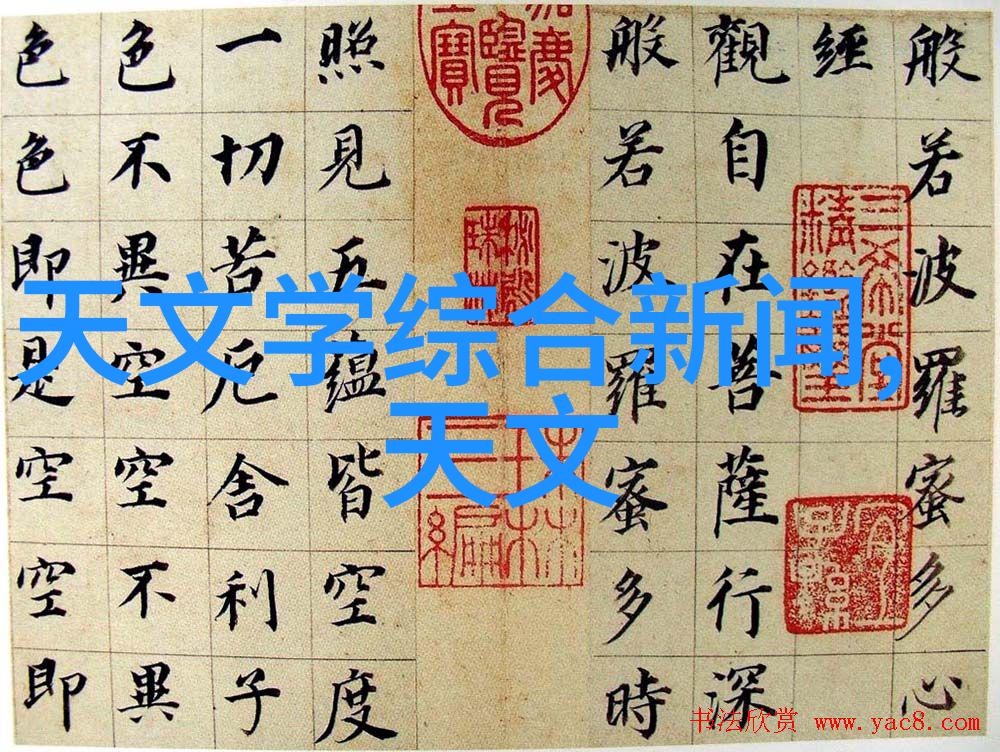 天文学综合新闻,
天文
般若波羅蜜多心
經
觀自在菩薩行深
般若波羅蜜多時
照見五蘊皆空度
一切苦厄舍利子
色不異空空不異
色色即是空空即
三希堂
精鑒璽
书法欣赏 www.yac8.com